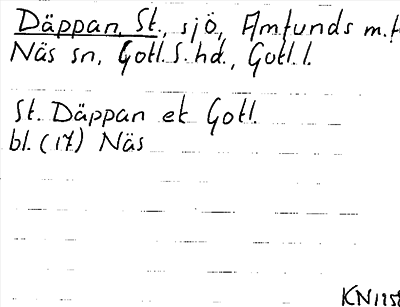 Däppan, St., sjö, Amlunds m.fl.
Näs sn, Gotl. S. hd., Gotl. l.
St. Däppan et Gotl.
bl. (17) Näs